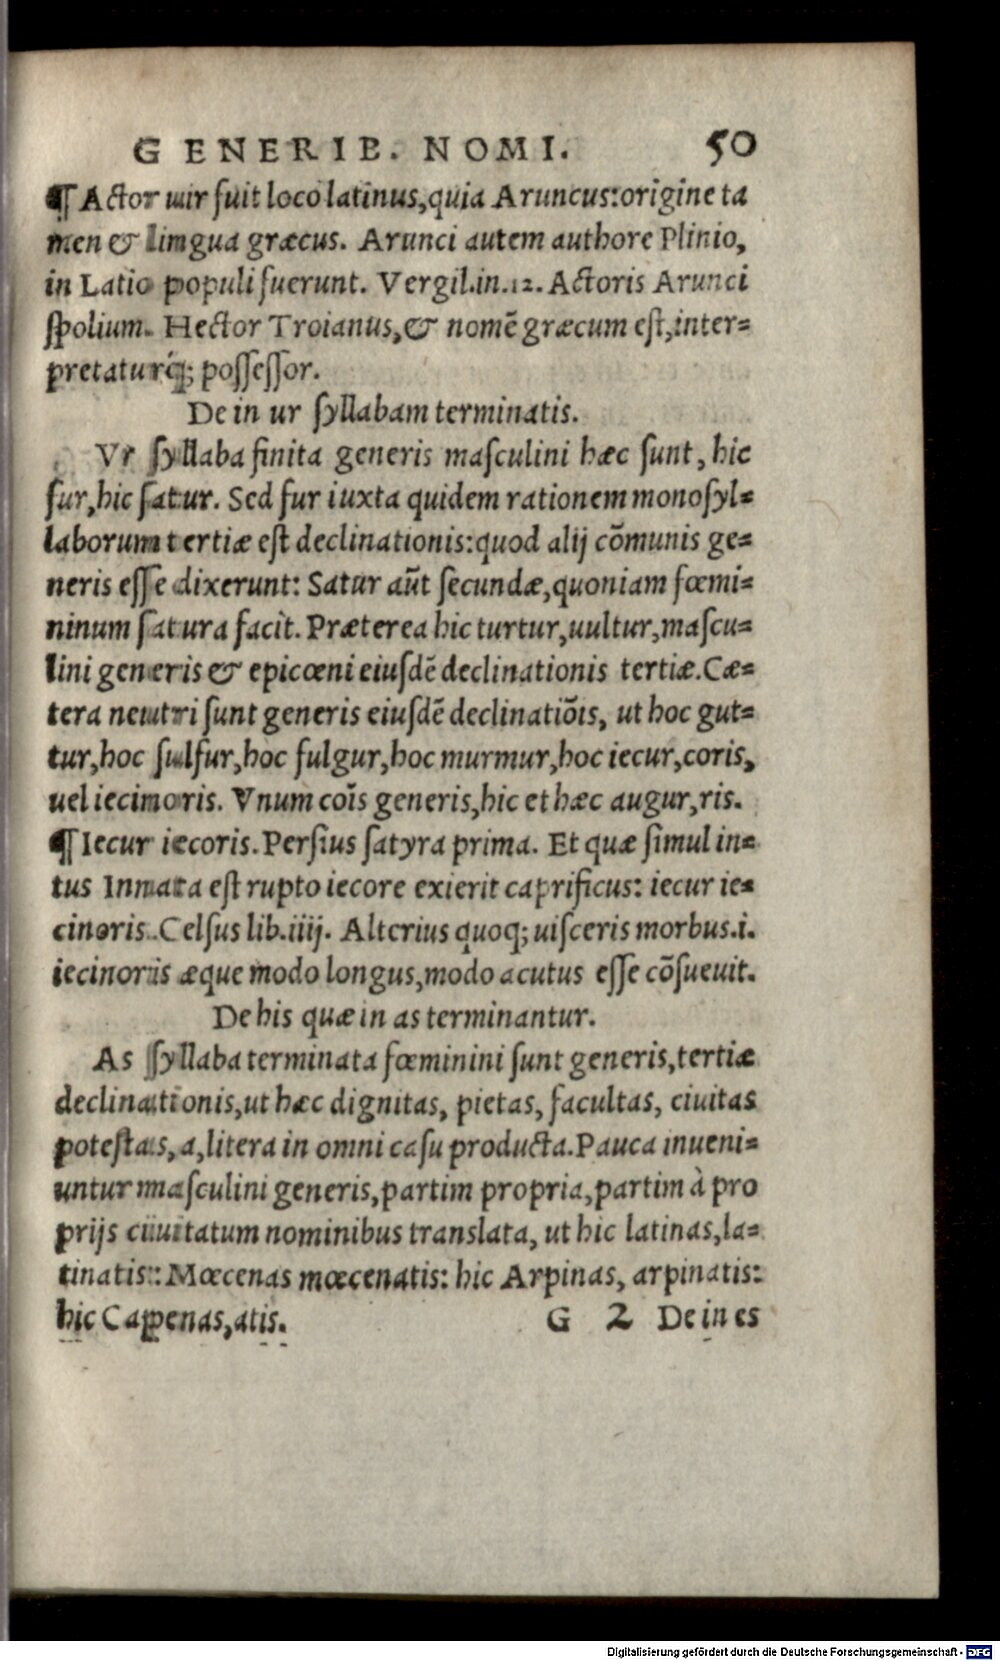 GENERIB. NOMI. 50
¶ Actor uir fuit loco latinus, quia Aruncus: origine ta
men & lingua græcus. Arunci autem authore Plinio,
in Latio populi fuerunt. Vergil.in.12. Actoris Arunci
spolium. Hector Troianus, & nomē græcum est, inter=
pretaturq́; possessor.
De in ur syllabam terminatis.
Vr syllaba finita generis masculini hæc sunt, hic
fur, hic satur. Sed fur iuxta quidem rationem monosyl=
laborum tertiæ est declinationis: quod alij cōmunis ge=
neris esse dixerunt: Satur aūt secundæ, quoniam fœmi=
ninum satura facìt. Præterea hic turtur, uultur, mascu=
lini generis & epicœni eiusdē declinationis tertiæ. Cæ=
tera neutri sunt generis eiusdē declinatiōis, ut hoc gut=
tur, hoc sulfur, hoc fulgur, hoc murmur, hoc iecur, coris,
uel iecinoris. Vnum coīs generis, hic et hæc augur, ris.
¶ Iecur iecoris. Persius satyra prima. Et quæ simul in=
tus Innata est rupto iecore exierit caprificus: iecur ie=
cinoris. Celsus lib.iiij. Alterius quoq; uisceris morbus.i.
iecinoris æque modo longus, modo acutus esse cōsueuit.
De his quæ in as terminantur.
As syllaba terminata fœminini sunt generis, tertiæ
declinationis, ut hæc dignitas, pietas, facultas, ciuitas
potestas, a, litera in omni casu producta. Pauca inueni=
untur masculini generis, partim propria, partim à pro
prijs ciuitatum nominibus translata, ut hic latinas, la=
tinatis: Mœcenas mœcenatis: hic Arpinas, arpinatis:
hic Capenas, atis. G 2 De in es
Digitalisierung gefördert durch die Deutsche Forschungsgemeinschaft - DFG